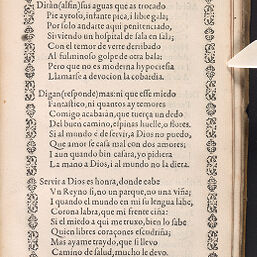 Diràn(alfin)sus aguas que as trocado
Pie ayroso, infante pica, i libre gala;
Por solo andarte aqui penitenciado,
Sirviendo un hospital de sala en sala;
Con el temor de verte derribado
Al fulminoso golpe de otra bala;
Pero que no es moderna hypocresia
Llamarse a devocion la cobardia.
Digan(responde)mas: ni que esse miedo
Fantastico, ni quantos ay temores
Comigo acabaràn, que tuerça un dedo
Del buen camino, espinas huelle, o flores.
Si al mundo è de servir, a Dios no puedo,
Que amor se casa mal con dos amores;
I aun quando bien casara, yo pidiera
La mano a Dios, i al mundo no la diera.
Servir a Dios es honra, donde cabe
Vn Reyno si, no un parque, no una viña;
I quando el mundo en mi su lengua labe,
Corona labra, que mi frente ciña:
Si el miedo a qui me truxo, bien lo sabe
Quien libres coraçones escudriña;
Mas ayame traydo, que si llevo
Camino de salud, mucho le devo.